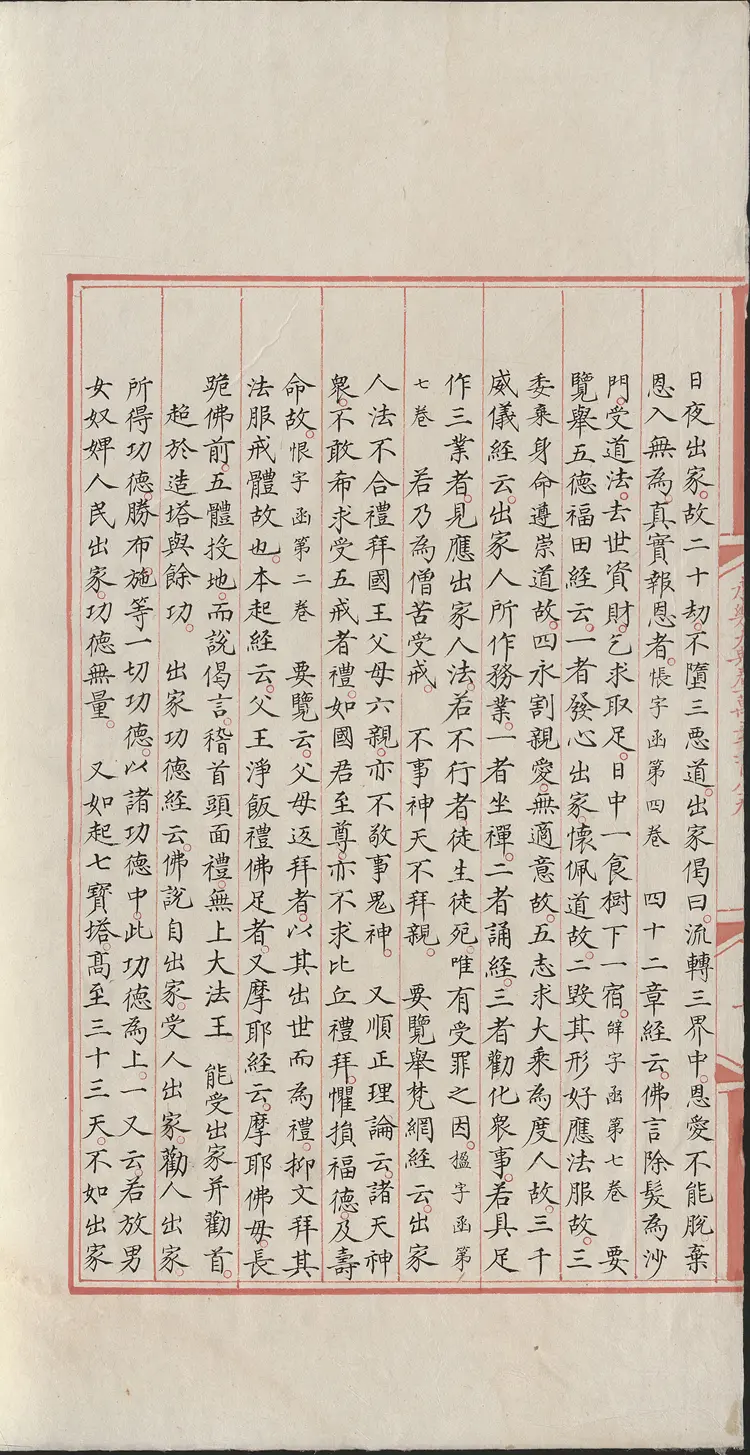 日夜出家。故二十劫。不墮三惡道。出家偈曰。流轉三界中。恩愛不能脫。棄
恩入無為。真實報恩者。悵字函第四卷　四十二章經云。佛言除髮為沙
門。受道法。去世資財。乞求取足。日中一食。樹下一宿。鲜字函第七卷　要
覽舉五德福田經云。一者發心出家。懷佩道故。二毀其形好應法服故。三
委棄身命遵崇道故。四永割親愛。無適意故。五志求大乘為度人故。三千
威儀經云。出家人所作務業。一者坐禪。二者誦經。三者勸化衆事。若具足
作三業者。見應出家人法。若不行者徒生徒死。唯有受罪之因。楹字函第
七卷　若乃為僧苦受戒。　不事神天不拜親。　要覽舉梵網經云。出家
人法不合禮拜國王父母六親。亦不敬事鬼神。　又順正理論云。諸天神
衆。不敢希求受五戒者禮。如國君至尊。亦不求比丘禮拜。懼損福德。及壽
命故。恨字函第二卷　要覽云。父母返拜者。以其出世而為禮。抑文拜其
法服戒體故也。本起經云。父王淨飯禮佛足者。又摩耶經云。摩耶佛母。長
跪佛前。五體投地。而說偈言。稽首頭面禮。無上大法王　能受出家并勸首。
　超於造塔與餘功。　出家功德經云。佛說自出家。受人出家。勸人出家。
所得功德。勝布施等一切功德。以諸功德中。此功德為上。一又云。若放男
女奴婢人民出家。功德無量。　又如起七寶塔。高至三十三天。不如出家